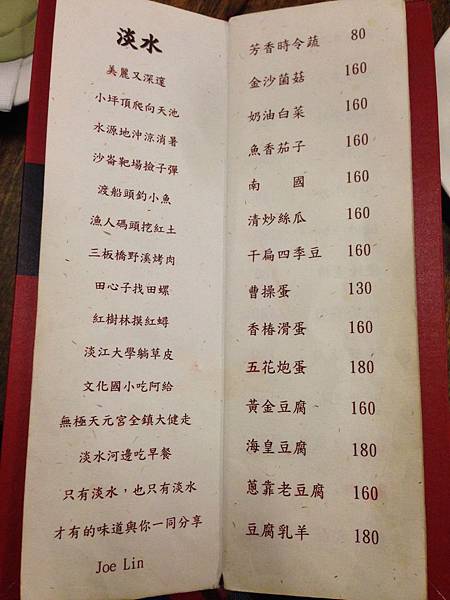 淡水
美麗又深邃
小坪頂爬向天池
水源地沖涼消暑
沙崙靶場撿子彈
渡船頭釣小魚
漁人碼頭挖紅土
三板橋野溪烤肉
田心子找田螺
紅樹林摸紅蟳
淡江大學躺草皮
文化國小吃阿給
無極天元宮全鎮大健走
淡水河邊吃早餐
只有淡水，也只有淡水
才有的味道與你一同分享
Joe Lin
芳香時令蔬 80
金沙菌菇 160
奶油白菜 160
魚香茄子 160
南國 160
清炒絲瓜 160
干扁四季豆 160
曹操蛋 130
香椿滑蛋 160
五花炮蛋 180
黃金豆腐 160
海皇豆腐 180
蔥靠老豆腐 160
豆腐乳羊 180